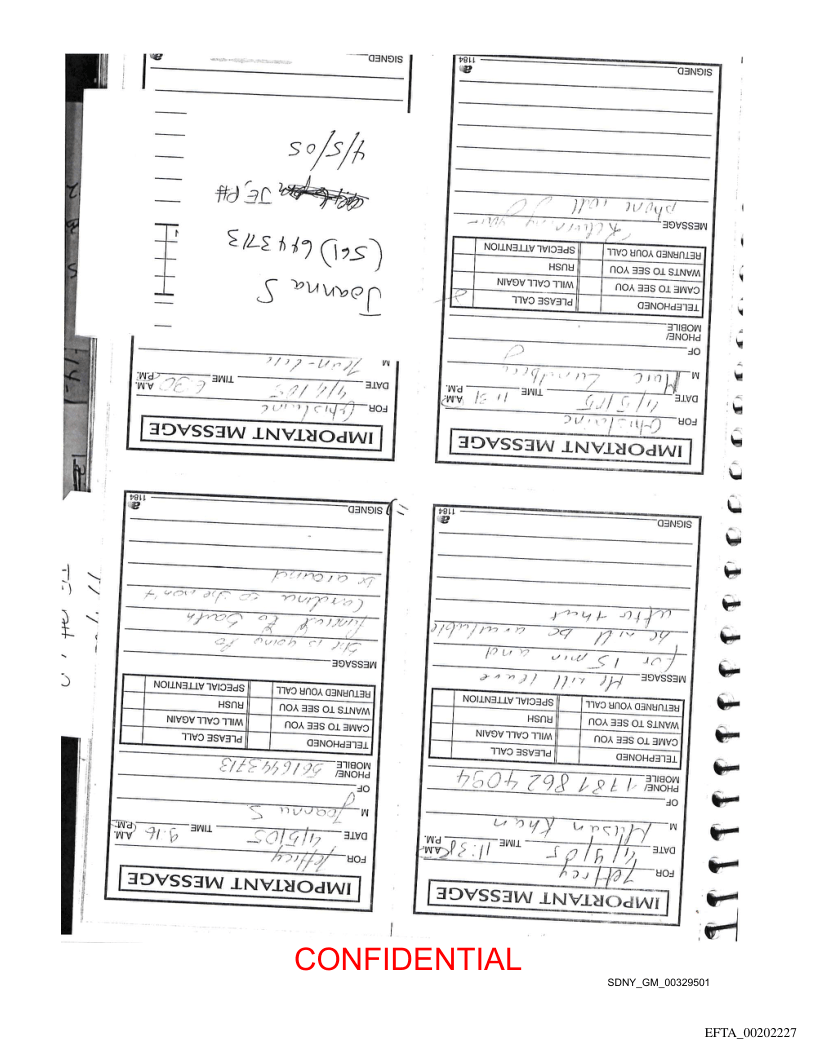 IMPORTANT MESSAGE
FOR Jeffrey
DATE 4/4/05 TIME 11:38 A.M. P.M.
M Khan
OF
PHONE/ MOBILE 1781 862 4094
TELEPHONED PLEASE CALL
CAME TO SEE YOU WILL CALL AGAIN
WANTS TO SEE YOU RUSH
RETURNED YOUR CALL SPECIAL ATTENTION
MESSAGE He will leave
for 15 min and
he will be available
after that
SIGNED 1184
IMPORTANT MESSAGE
FOR Jeffrey
DATE 4/5/05 TIME 9:16 A.M. P.M.
M Joanna S
OF
PHONE/ MOBILE 5616443713
TELEPHONED PLEASE CALL
CAME TO SEE YOU WILL CALL AGAIN
WANTS TO SEE YOU RUSH
RETURNED YOUR CALL SPECIAL ATTENTION
MESSAGE
She is going to
funeral to South
Carolina so she won't
be around
SIGNED 1184
IMPORTANT MESSAGE
FOR Ghislaine
DATE 4/5/05 TIME 11:31 A.M. P.M.
M
OF
PHONE/ MOBILE
TELEPHONED PLEASE CALL
CAME TO SEE YOU WILL CALL AGAIN
WANTS TO SEE YOU RUSH
RETURNED YOUR CALL SPECIAL ATTENTION
MESSAGE Returning your
phone call
SIGNED 1184
IMPORTANT MESSAGE
FOR Ghislaine
DATE 4/4/05 TIME 6:30 A.M. P.M.
M Jean-Luc
Joanna S
(561) 6443713
JE, PH
4/5/05
SIGNED
CONFIDENTIAL
SDNY_GM_00329501
EFTA_00202227